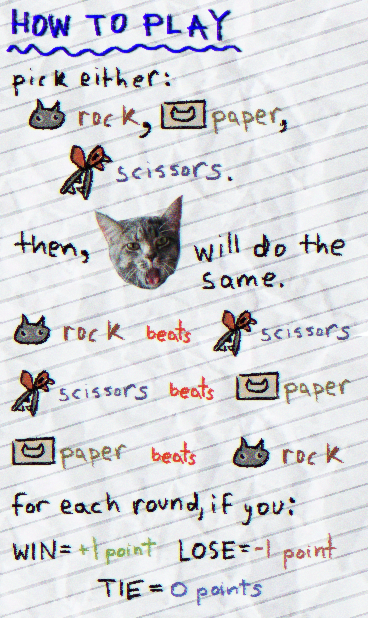 HOW TO PLAY
pick either:
rock, paper,
scissors.
then, will do the
same.
rock beats scissors
scissors beats paper
paper beats rock
for each round, if you:
WIN=+1 point LOSE=-1 point
TIE=0 points